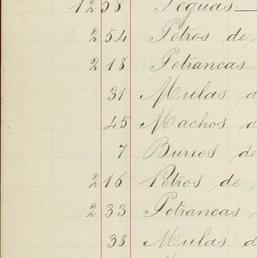 1258 Yeguas
254 Potros de
218 Potrancas
31 Mulas d
45 Machos d
7 Burros de
216 Potros de
233 Potrancas
38 Mulas d